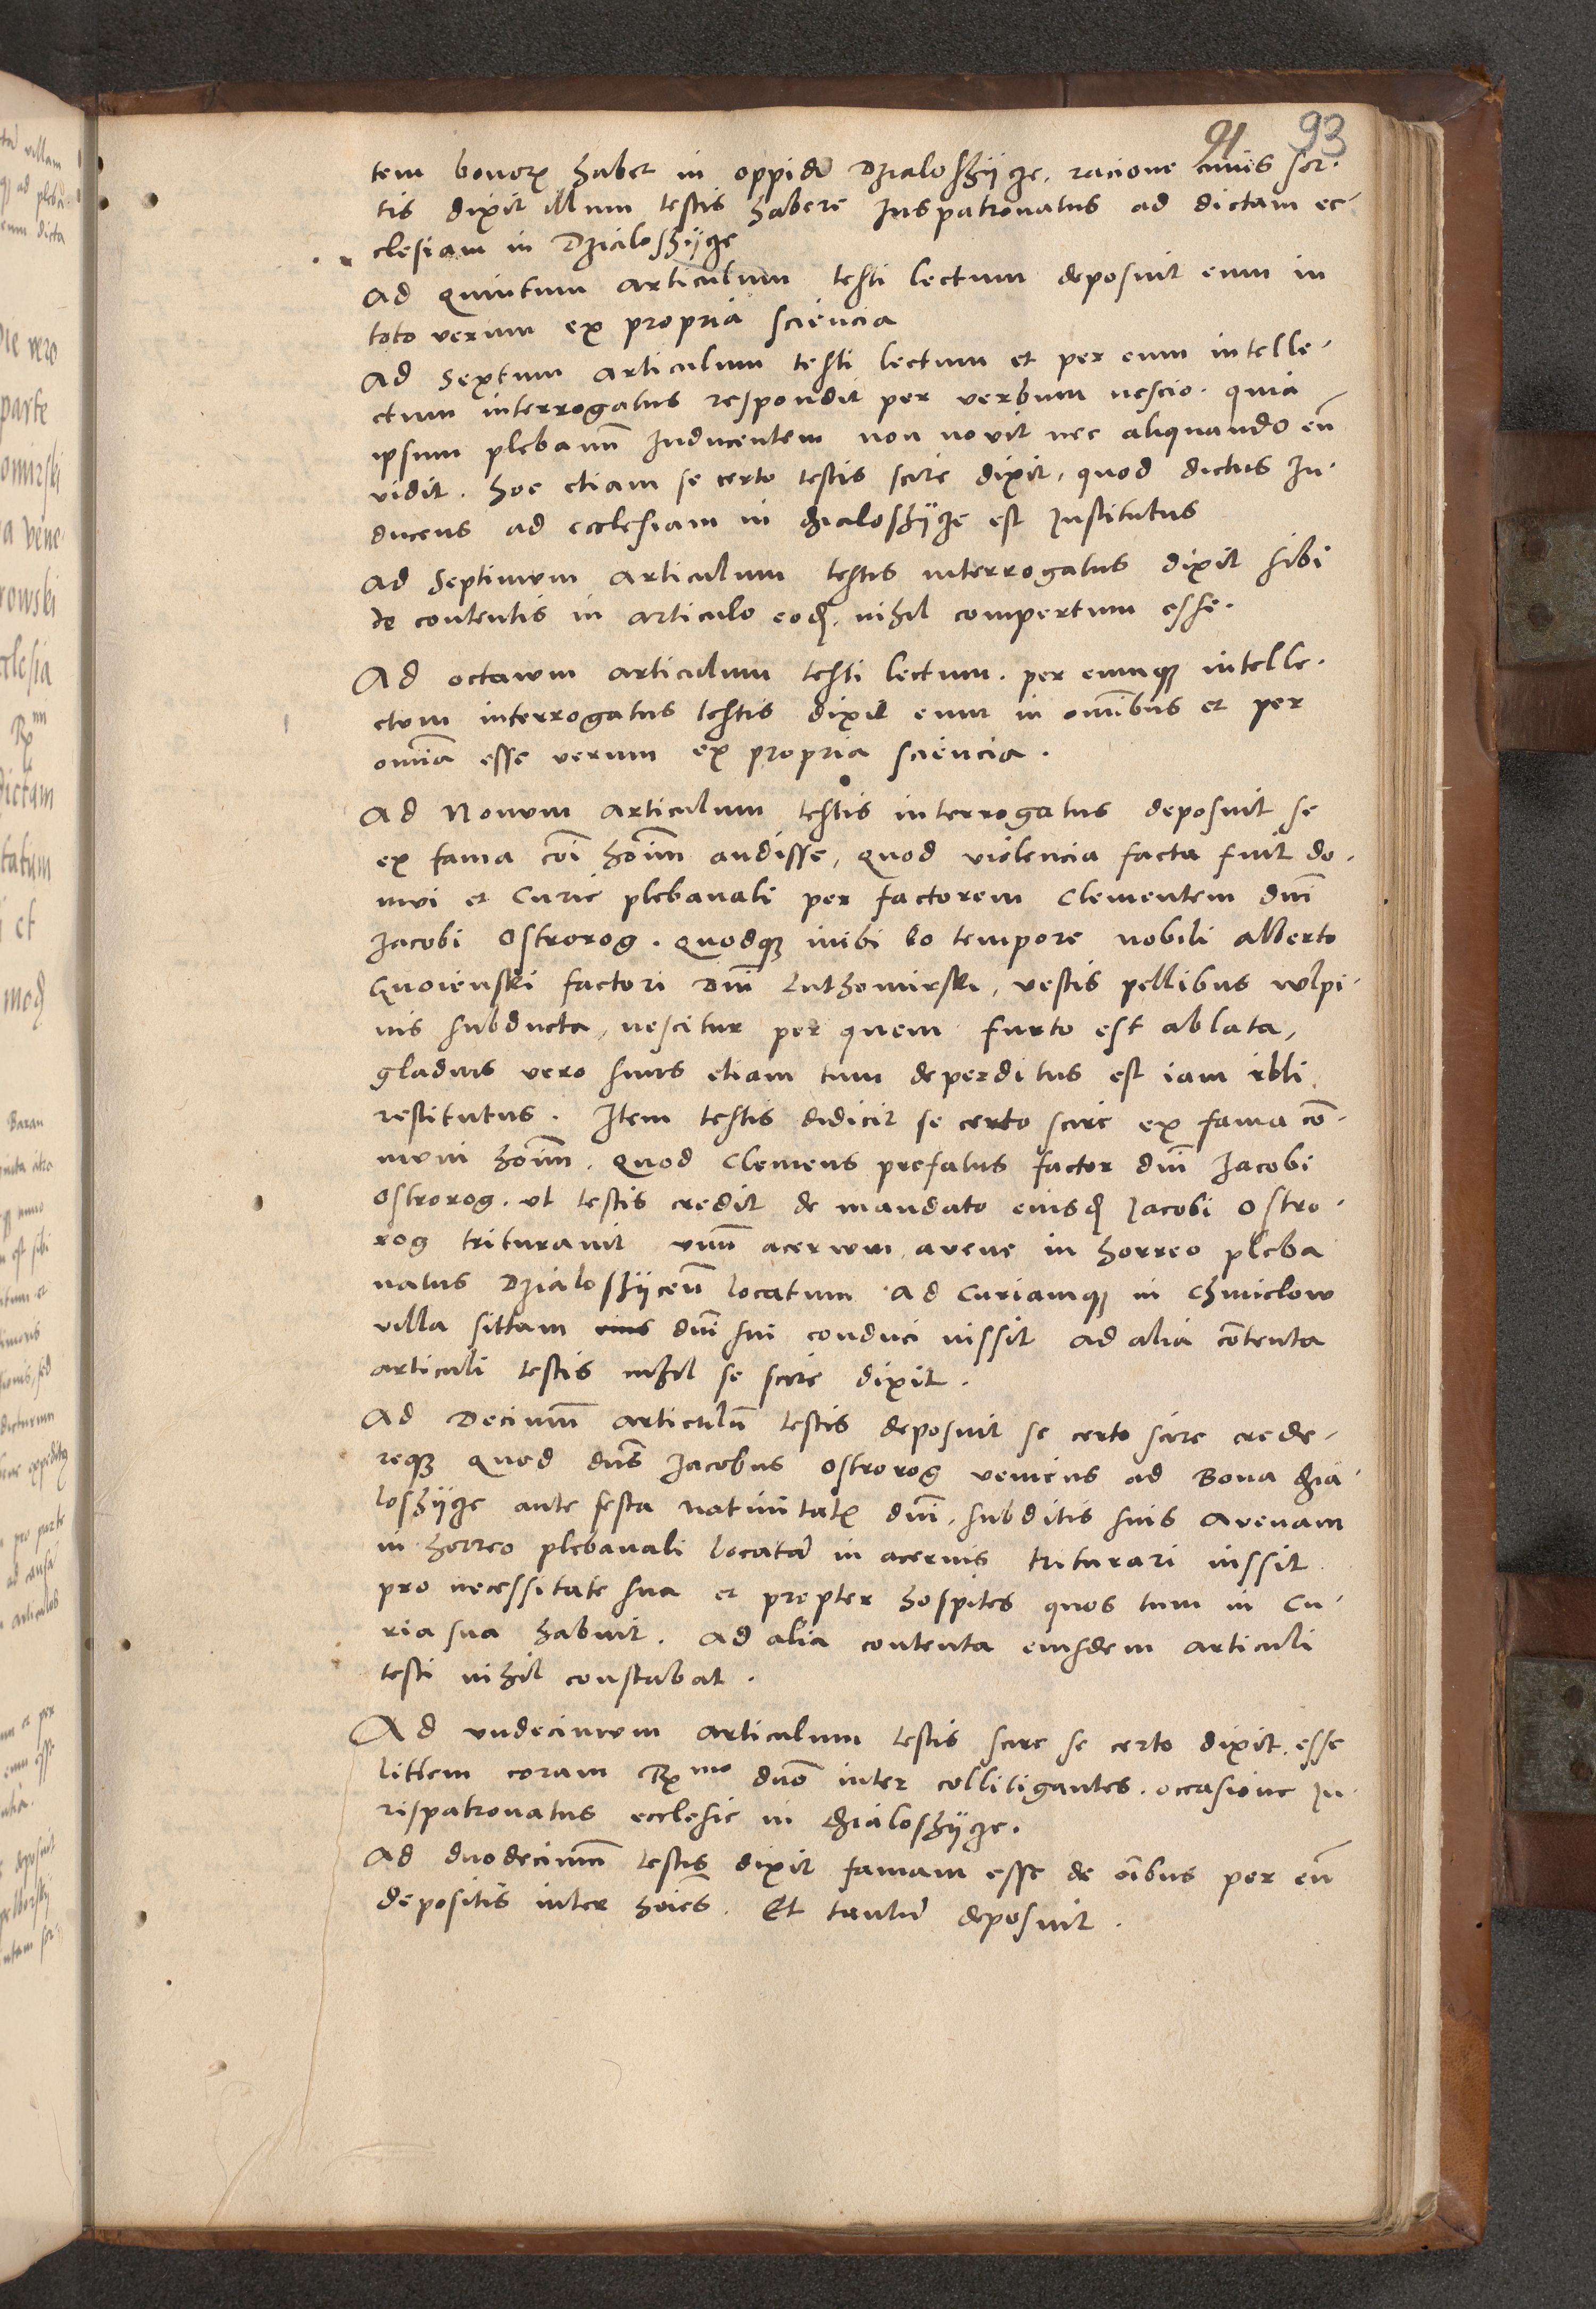 91 93
tem bonorꝫ habet in oppido Dzialoschÿcze, racione cuius sor-
tis dixit illum testis habere Juspatronatus ad dictam ec-
clesiam in Dzialoschÿcze
Ad Quintum articulum testi lectum deposuit eum in
toto verum ex propria sciencia
Ad Sextum articulum testi lectum et per eum intelle-
ctum interrogatus respondit per verbum nescio. quia
ipsum plebanū Inducentem non novit nec aliquando eū
vidit. hoc etiam se certo testis scire dixit, quod dictus In-
ducens ad ecclesiam in dzialoschÿcze est Institutus
Ad Septimum articulum testis interrogatus dixit sibi
de contentis in articulo eodꝫ nihil compertum esse.
Ad octavum articulum testi lectum. per eumqꝫ intelle-
ctum interrogatus testis dixit eum in omībus et per
omīa esse verum ex propria sciencia.
Ad Nonum articulum testis interrogatus deposuit se
ex fama cōi hoīm audisse, quod violencia facta fuit do-
mui et Curie plebanali per factorem Clementem dnī
Jacobi Ostrorog. quodqꝫ inibi eo tempore nobili alberto
Gnoienski factori Dnī Luthomirski, vestis pellibus wlpi-
nis subducta, nescitur per quem furto est ablata,
gladius vero suus etiam tum deperditus est iam
restitutus. Item testis didicit se certo scire ex fama cō-
muni hoīm. quod Clemens prefatus factor dnī Jacobi
Ostrorog. ut testis credit de mandato eiusdꝫ Jacobi Ostro-
rog triturauit vnū acervum avene in horreo pleba
natus Dzialoschÿceñ locatum ad Curiamqꝫ in Chmielow
villa sittam eius dnī sui conduci iussit ad alia cōtenta
articuli testis nihil se scire dixit.
Ad Decimū articulū testis deposuit se certo scire crede-
reqꝫ quod dns̄ Jacobus Ostrorog veniens ad Bona dzia-
loschÿcze ante festa natiuitatꝫ dnī, subditis suis avenam
in horreo plebanali locatā in acervis triturari iussit
pro necessitate sua et propter hospites quos tum in Cu-
ria sua habuit. Ad alia contenta eiusdem articuli
testi nihil constabat.
Ad vndecimum articulum testis scire se certo dixit. esse
littem coram Rx̄mo dnō inter colliligantes. occasione Ju-
rispatronatus ecclesie in dzialoschÿcze.
Ad duodecimū testis dixit famam esse de oībus per eū
depositis inter hoīes. Et tantū deposuit.